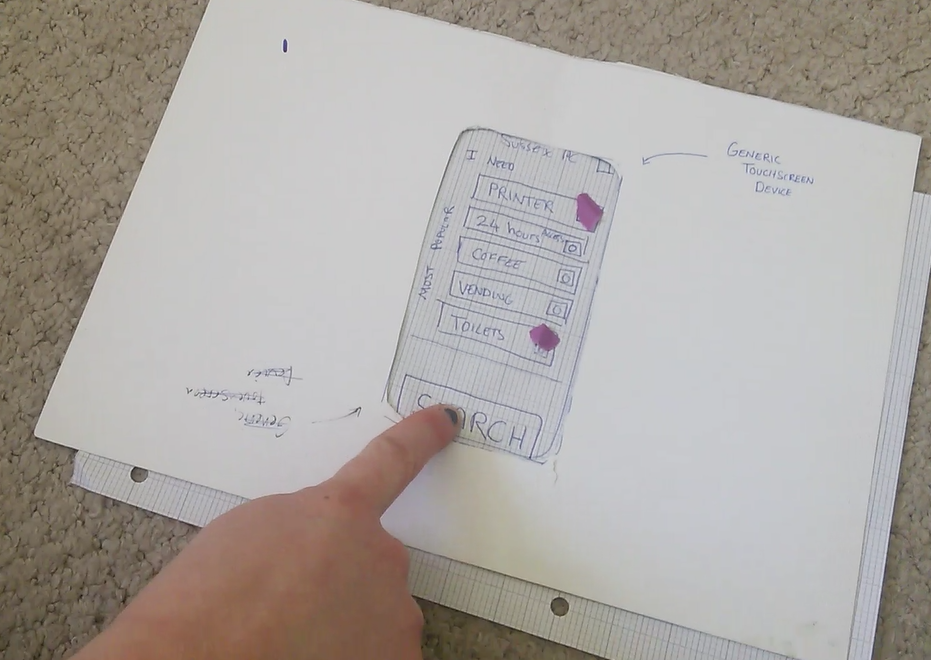 SUSSEX PC
I NEED
PRINTER
24 hours ACCESS
COFFEE
VENDING
TOILETS
MOST POPULAR
SEARCH
GENERIC
TOUCHSCREEN
DEVICE
Generic
Touchscreen
Device